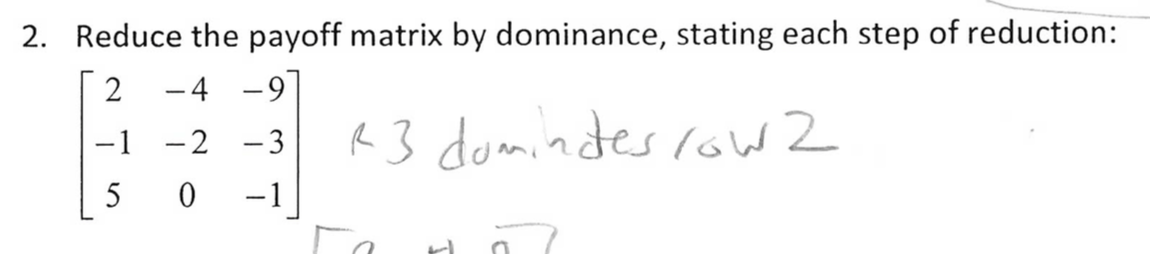 2. Reduce the payoff matrix by dominance, stating each step of reduction:
2 -4 -9
-1 -2 -3 R3 dominates row 2
5 0 -1